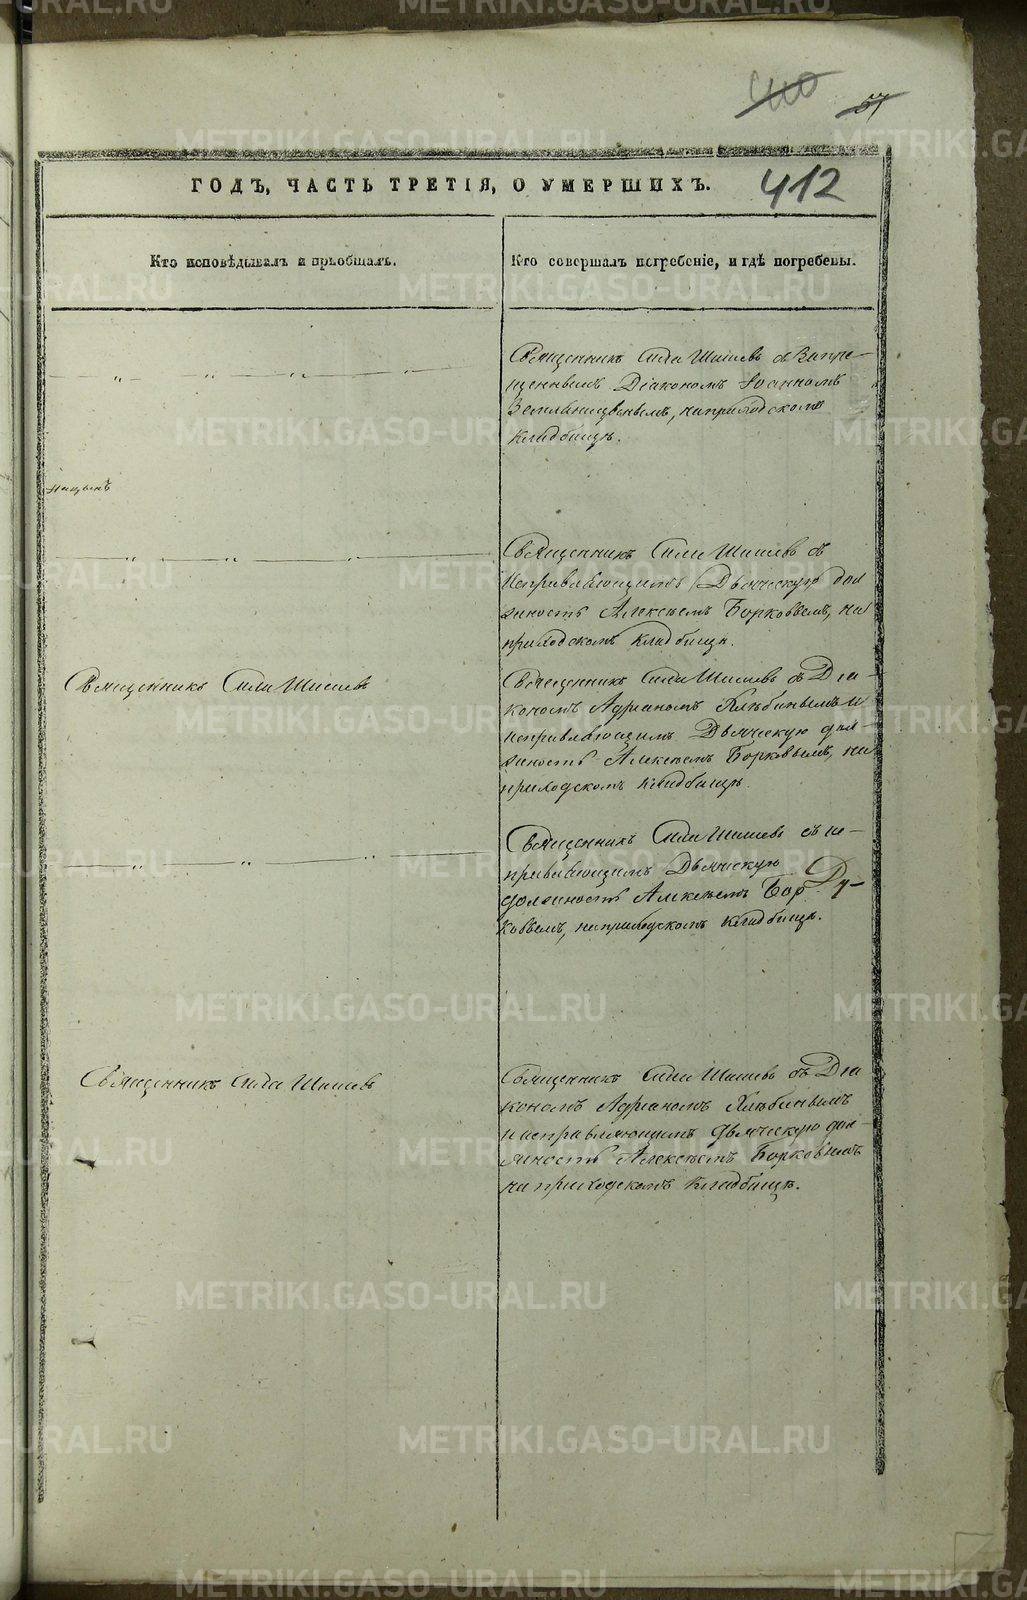 57
412
ГОДЪ, ЧАСТЬ ТРЕТІЯ, О УМЕРШИХЪ.
Кто исповѣдывалъ и пріобщалъ.
Кто совершалъ погребеніе, и гдѣ погребены.
Священникъ Сила Шишевъ съ Запре-
щеннымъ Діакономъ Іоанномъ
на приходскомъ
кладбищѣ.
Священникъ Сила Шишевъ съ
Исправляющимъ Дьяческую дол
жность Алексѣемъ Борковымъ, на
приходскомъ кладбищѣ.
Священникъ Сила Шишевъ
Священникъ Сила Шишевъ съ Діа-
кономъ Адріаномъ Хлѣбинымъ и
исправляющимъ Дьяческую дол-
жность Алексѣемъ Борковымъ, на
приходскомъ кладбищѣ.
Священникъ Сила Шишевъ съ ис-
правляющимъ Дьяческую
должность Алексѣемъ Бор
ковымъ, на приходскомъ кладбищѣ.
Ду-
Священникъ Сила Шишевъ
Священникъ Сила Шишевъ съ Діа
кономъ Адріаномъ Хлѣбинымъ
и исправляющимъ дьяческую дол-
жность Алексѣемъ Борковымъ
на приходскомъ кладбищѣ.
METRIKI.GASO-URAL.RU